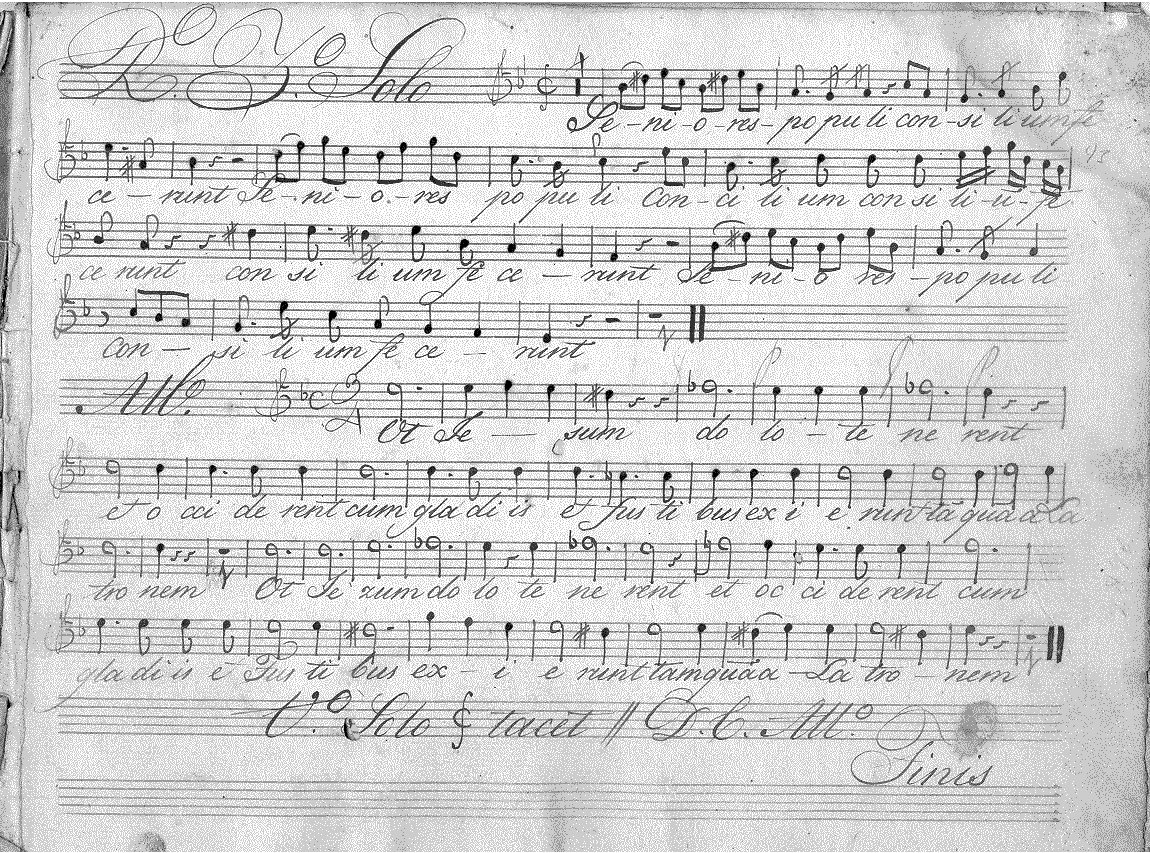 R.º 7.º Solo
Se-ni-o-res-po pu li con-si li um fe
ce-runt Se-ni-o-res po pu li Con-ci li um con si li-u-fe
ce runt con si li um fe ce-runt Se-ni-o res-po pu li
con-si li um fe ce-runt
All.º
Ot Je-sum do lo-te ne rent
et o cci de rent cum gla di is et Fus ti bus ex i e runt tã quã a La
tro nem Ot Je zum do lo te ne rent et oc ci de rent cum
gla di is e Fus ti bus ex-i e runt tam quã a-La tro-nem
V.º Solo tacet // D.C. All.º
Finis